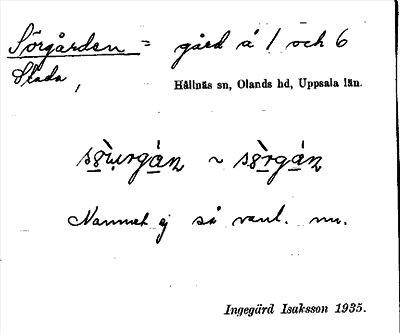 Sörgården = gård å 1 och 6
Slada,
Hållnäs sn, Olands hd, Uppsala län.
~
Namnet ej så vanl. nu.
Ingegärd Isaksson 1935.